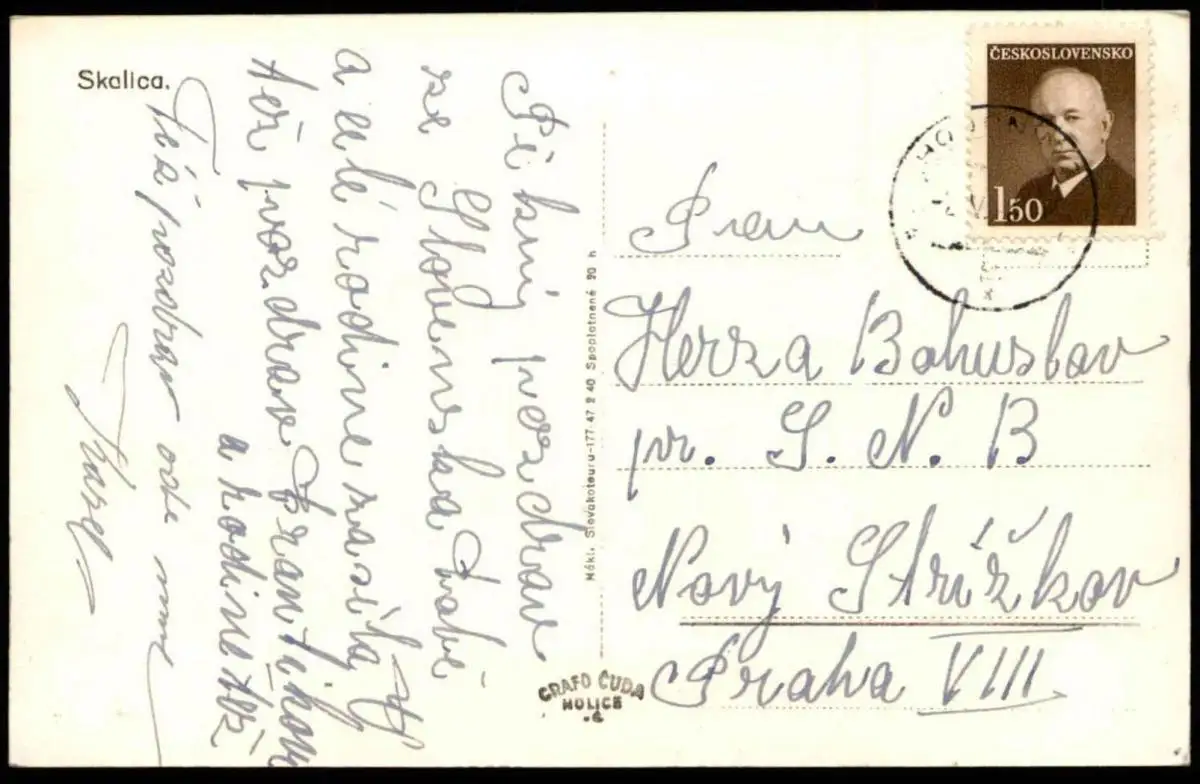 Skalica.
Pěkný pozdrav
ze Slovenska Tobě
a celé rodině zasílá
též pozdrav
a rodině též
Též pozdrav ode mne
Karel
Nákl. Slovakotouru-177-47 2 40 Spoplatnené 20 h
GRAFO ČUDA
HOLICE
ČESKOSLOVENSKO
1 50
Pan
Herza Bohuslav
pr. S. N. B
Nový Střížkov
Praha VIII